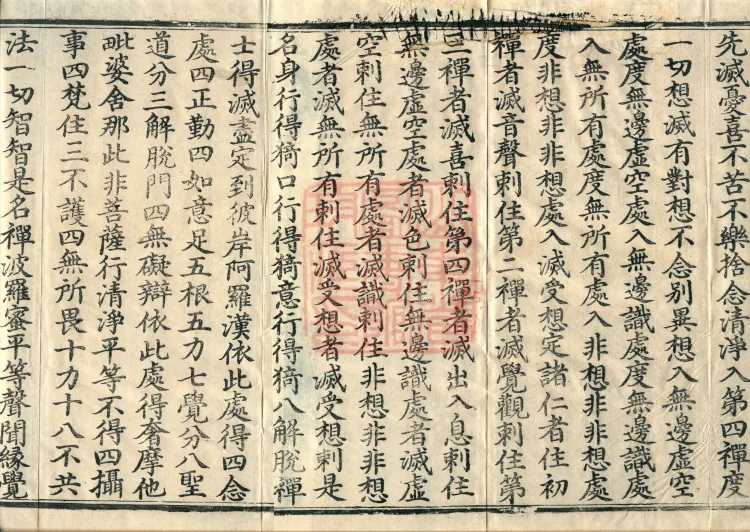 先滅憂喜不苦不樂捨念清淨入第四禪度
一切想滅有對想不念別異想入無邊虛空
處度無邊虛空處入無邊識處度無邊識處
入無所有處度無所有處入非想非非想處
度非想非非想處入滅受想定諸仁者住初
禪者滅音聲刺住第二禪者滅覺觀刺住第
三禪者滅喜刺住第四禪者滅出入息刺住
無邊虛空處者滅色刺住無邊識處者滅虛
空刺住無所有處者滅識刺住非想非非想
處者滅無所有刺住滅受想者滅受想刺是
名身行得猗口行得猗意行得猗八解脫禪
士得滅盡定到彼岸阿羅漢依此處得四念
處四正勤四如意足五根五力七覺分八聖
道分三解脫門四無礙辯依此處得奢摩他
毗婆舍那此非菩薩行清淨平等不得四攝
事四梵住三不護四無所畏十力十八不共
法一切智智是名禪波羅蜜平等聲聞緣覺